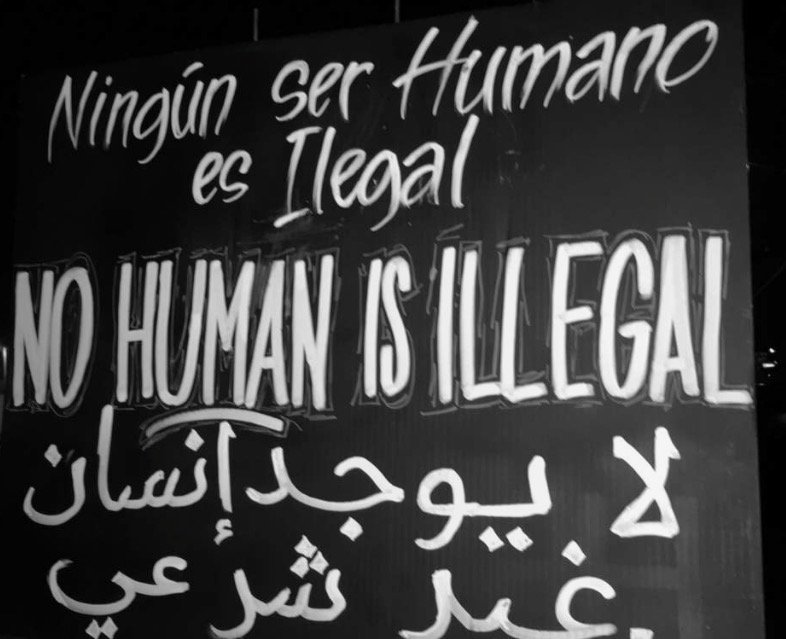 Ningún ser Humano
es Ilegal
NO HUMAN IS ILLEGAL
لا يوجد إنسان
غير شرعي